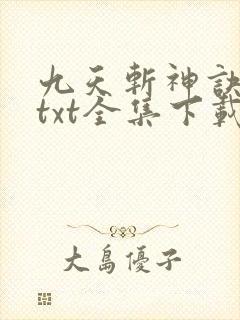 九天斬神訣
txt全集下載
大島優子